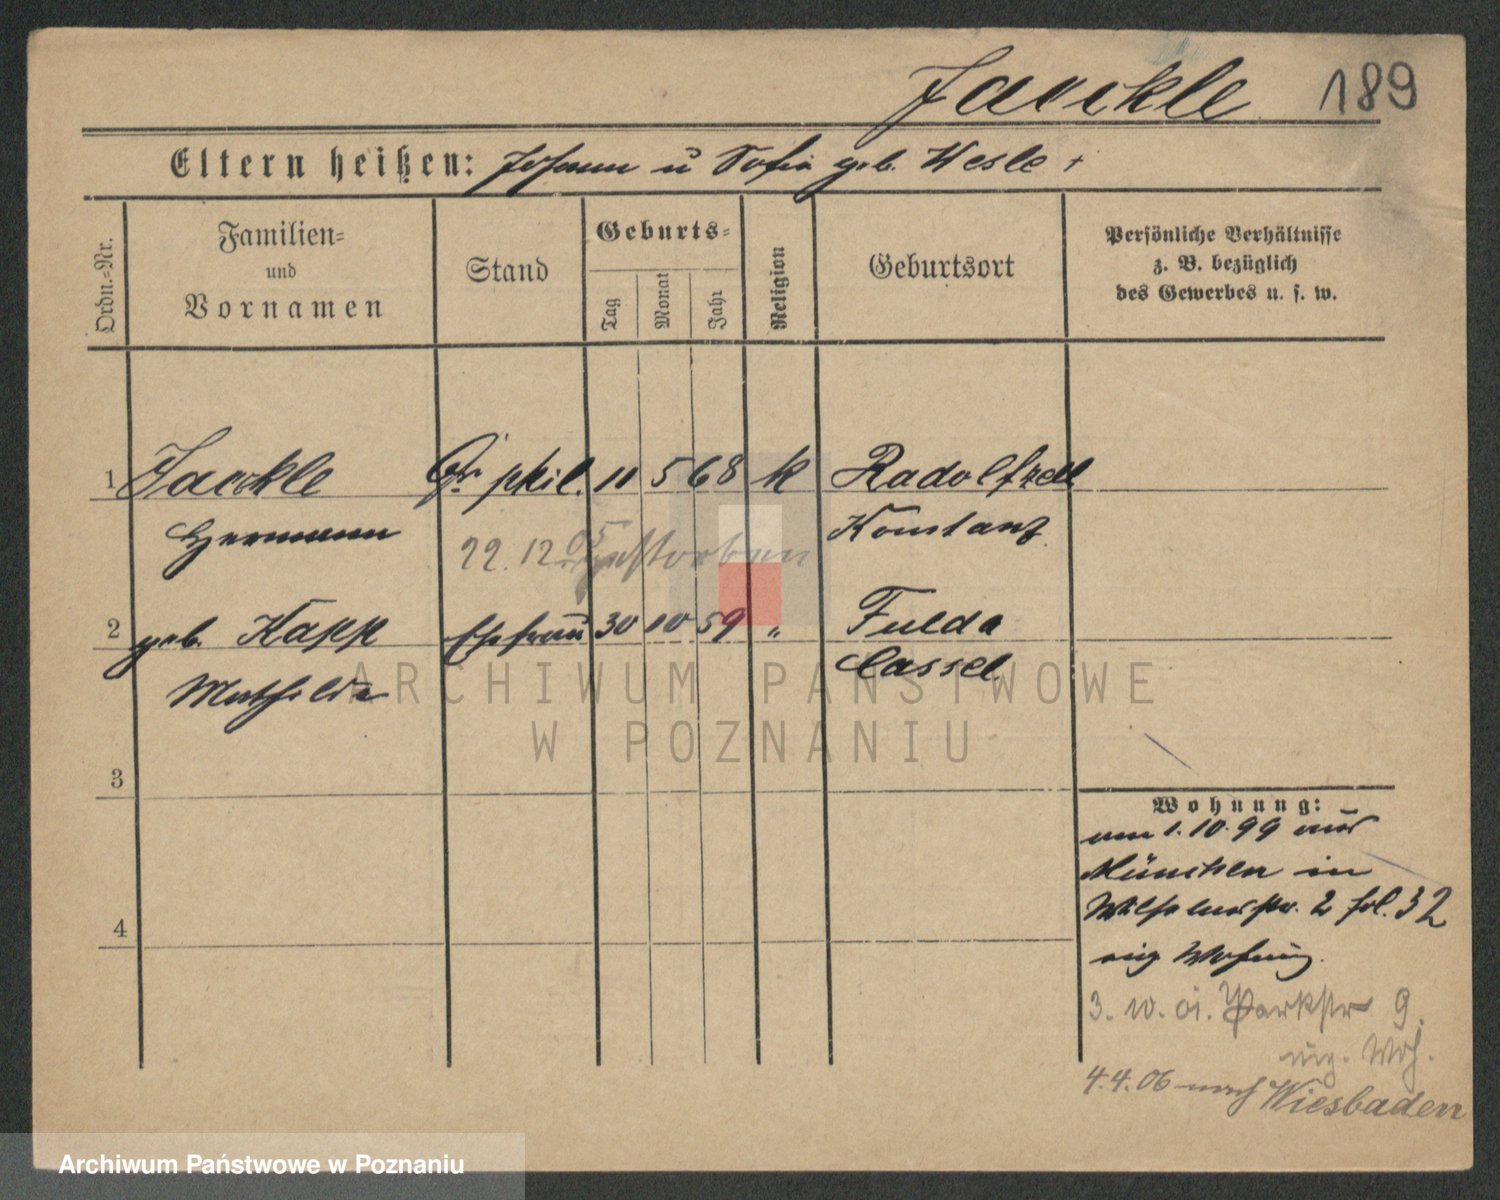 Jaeckle 189
Eltern heißen: Johann u Sofia geb. Wesle +
Ordn.-Nr.
Familien-
und
Vornamen
Stand
Geburts-
Tag
Monat
Jahr
Religion
Geburtsort
Persönliche Verhältnisse
z. B. bezüglich
des Gewerbes u. s. w.
1 Jaeckle Dr phil. 11 5 68 k Radolfzell
Hermann Konstanz
22. 12. 05 gestorben
2 geb. Kapp Ehefrau 30 10 59 " Fulda
Mathilde Cassel
3
4
Wohnung:
am 1. 10. 99 aus
München in
Wilhelmstr. 2 fol. 32
eig Wohnung.
3. 10. 01. Parkstr 9.
eig. Woh.
4. 4. 06 nach Wiesbaden
ARCHIWUM PAŃSTWOWE
W POZNANIU
Archiwum Państwowe w Poznaniu